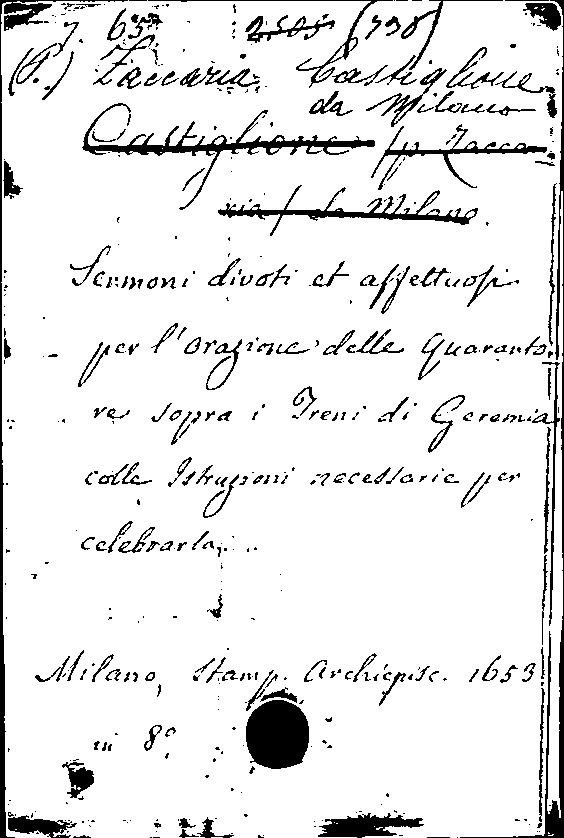 7. 65 2505 (738)
(P.) Zaccaria Castiglione
da Milano
Castiglione /p. Zacca-
ria/ da Milano.
Sermoni divoti et affettuosi
per l'orazione delle Quaranto
re sopra i Treni di Geremia
colle Istruzioni necessarie per
celebrarla...
Milano, Stamp. Archiepisc. 1653
in 8º